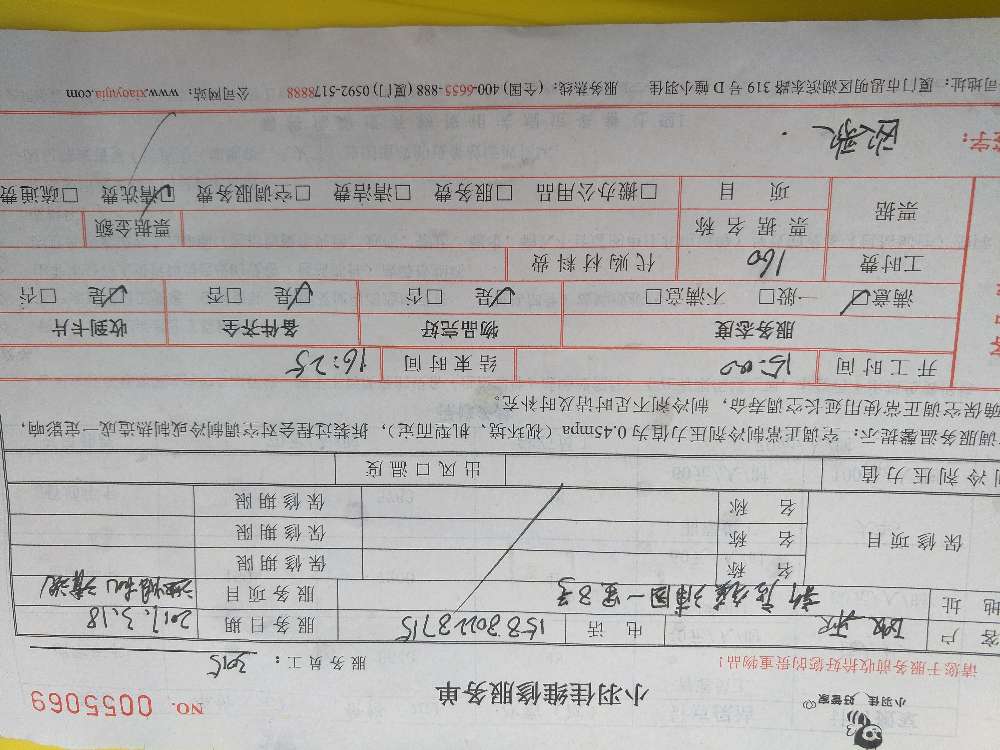 小羽佳 好管家
小羽佳维修服务单
NO. 0055069
请您于服务前收拾好您的贵重物品!
服务员工: 3015
客 户 电 话 15880228715 服务日期 2017.3.18
地 址 服务项目 油烟机清洗
保修项目
名 称 保修期限
名 称 保修期限
名 称 保修期限
制冷剂压力值 出风口温度
调服务温馨提示: 空调正常制冷剂压力值为0.45mpa (视环境、机型而定), 拆装过程会对空调制冷或制热造成一定影响,
确保空调正常使用延长空调寿命, 制冷剂不足时请及时补充。
开工时间 15:00 结束时间 16:25
服务态度 物品完好 备件齐全 收到卡片
满意☑ 一般□ 不满意□ ☑是 □否 ☑是 □否 ☑是 □否
工时费 160 代购材料费
票据 票据名称 票据金额
项 目 □搬办公用品 □服务费 □清洁费 □空调服务费 ☑清洗费 □疏通费
签字:
司地址: 厦门市思明区湖滨东路319号D幢小羽佳 服务热线: (全国) 400-6655-888 (厦门) 0592-5178888 公司网站: www.xiaoyujia.com